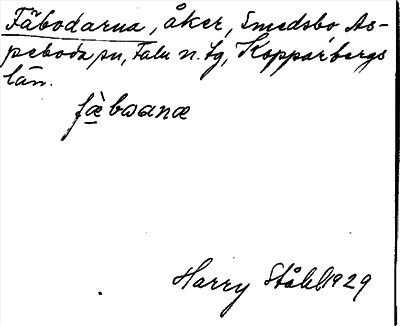 Fäbodarna, åker, Smedsbo As-
peboda sn, Falu n. tg, Kopparbergs
län.
fæ̀bωana
Harry Ståhl 1929